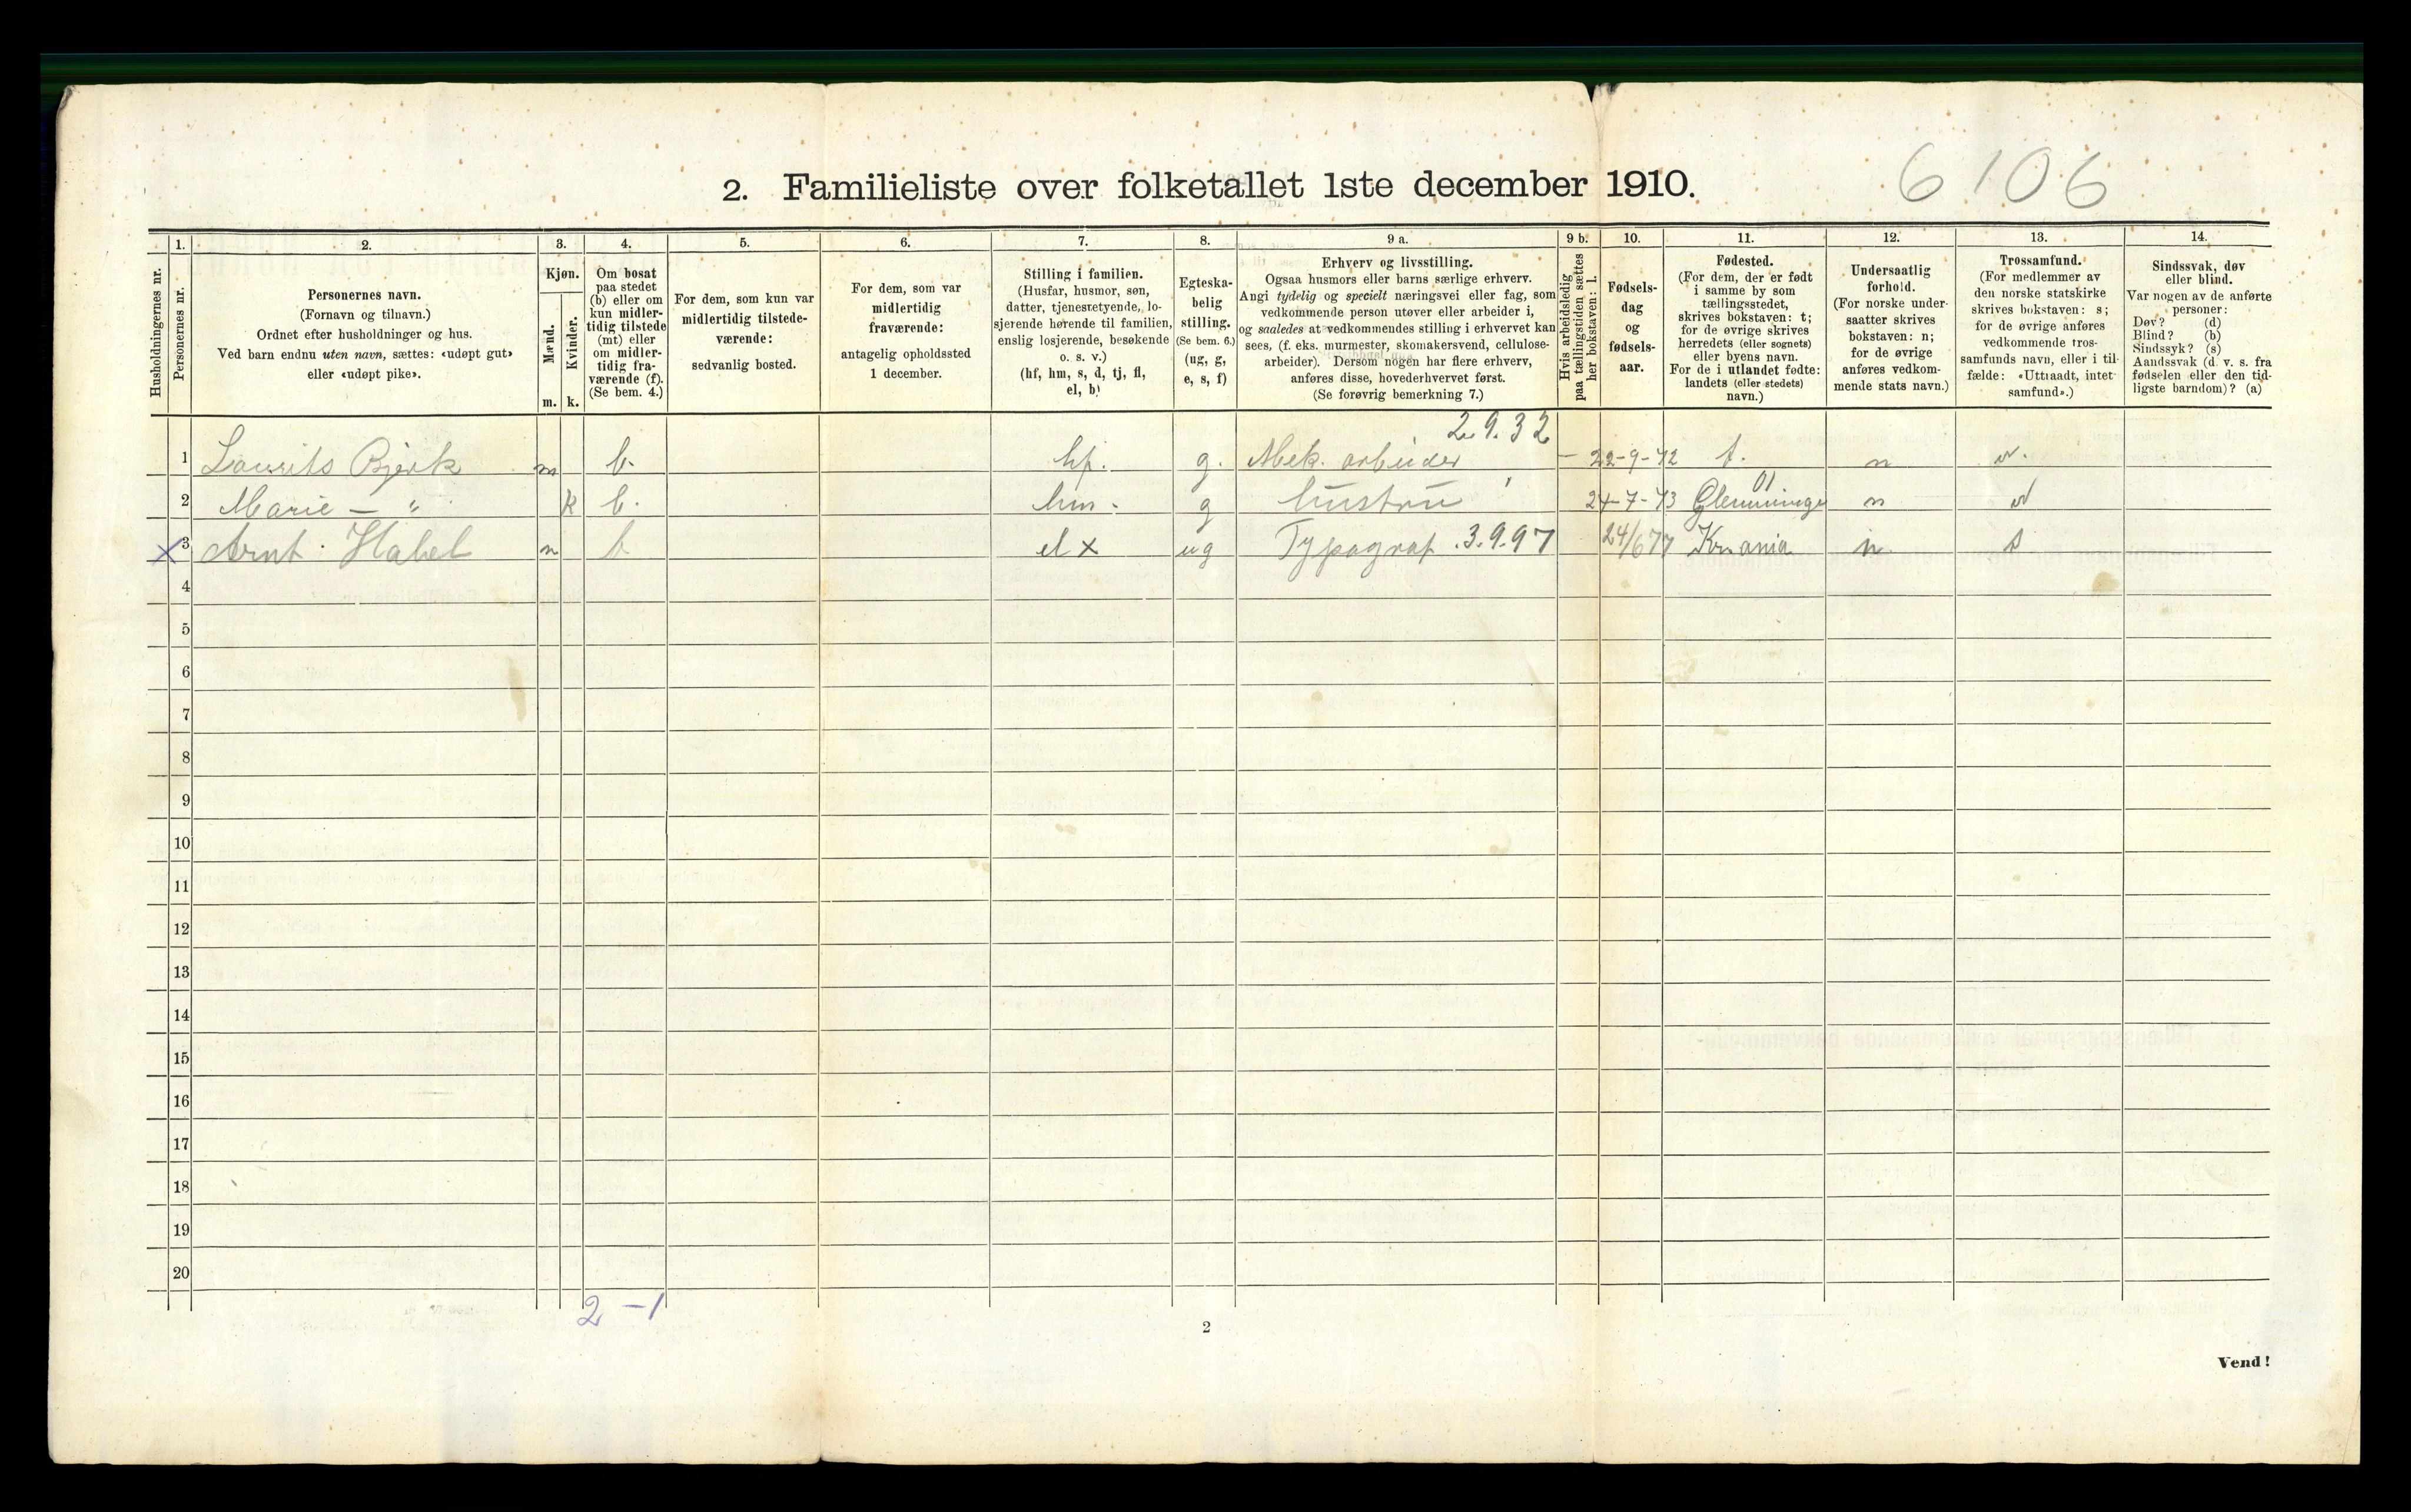 6106
2. Familieliste over folketallet 1ste december 1910.
Husholdningernes nr.
1.
Personernes nr.
2.
Personernes navn.
(Fornavn og tilnavn.)
Ordnet efter husholdninger og hus.
Ved barn endnu uten navn, sættes: «udøpt gut»
eller «udøpt pike».
3.
Kjøn.
Mænd.
Kvinder.
m. k.
4.
Om bosat
paa stedet
(b) eller om
kun midler-
tidig tilstede
(mt) eller
om midler-
tidig fra-
værende (f).
(Se bem. 4.)
5.
For dem, som kun var
midlertidig tilstede-
værende:
sedvanlig bosted.
6.
For dem, som var
midlertidig
fraværende:
antagelig opholdssted
1 december.
7.
Stilling i familien.
(Husfar, husmor, søn,
datter, tjenestetyende, lo-
sjerende hørende til familien,
enslig losjerende, besøkende
o. s. v.)
(hf, hm, s, d, tj, fl,
el, b)
8.
Egteska-
belig
stilling.
(Se bem. 6.)
(ug, g,
e, s, f)
9 a.
Erhverv og livsstilling.
Ogsaa husmors eller barns særlige erhverv.
Angi tydelig og specielt næringsvei eller fag, som
vedkommende person utøver eller arbeider i,
og saaledes at vedkommendes stilling i erhvervet kan
sees, (f. eks. murmester, skomakersvend, cellulose-
arbeider). Dersom nogen har flere erhverv,
anføres disse, hovederhvervet først.
(Se forøvrig bemerkning 7.)
9 b.
Hvis arbeidsledig
paa tællingstiden sættes
her bokstaven: l.
10.
Fødsels-
dag
og
fødsels-
aar.
11.
Fødested.
(For dem, der er født
i samme by som
tællingsstedet,
skrives bokstaven: t;
for de øvrige skrives
herredets (eller sognets)
eller byens navn.
For de i utlandet fødte:
landets (eller stedets)
navn.)
12.
Undersaatlig
forhold.
(For norske under-
saatter skrives
bokstaven: n;
for de øvrige
anføres vedkom-
mende stats navn.)
13.
Trossamfund.
(For medlemmer av
den norske statskirke
skrives bokstaven: s;
for de øvrige anføres
vedkommende tros-
samfunds navn, eller i til-
fælde: «Uttraadt, intet
samfund».)
14.
Sindssvak, døv
eller blind.
Var nogen av de anførte
personer:
Døv? (d)
Blind? (b)
Sindssyk? (s)
Aandssvak (d. v. s. fra
fødselen eller den tid-
ligste barndom)? (a)
2.9.32
1 Laurits Bjerk m b. hf. g. Mek. arbeider – 22-9-72 t. n s.
01
2 Marie – " k b. hm. g hustru 24-7-73 Glemminge n s
x 3 Arnt Habel m b el x ug Typograf 3.9.97 24/6 77 Kr.ania n s
4
5
6
7
8
9
10
11
12
13
14
15
16
17
18
19
20
2 – 1
2
Vend!